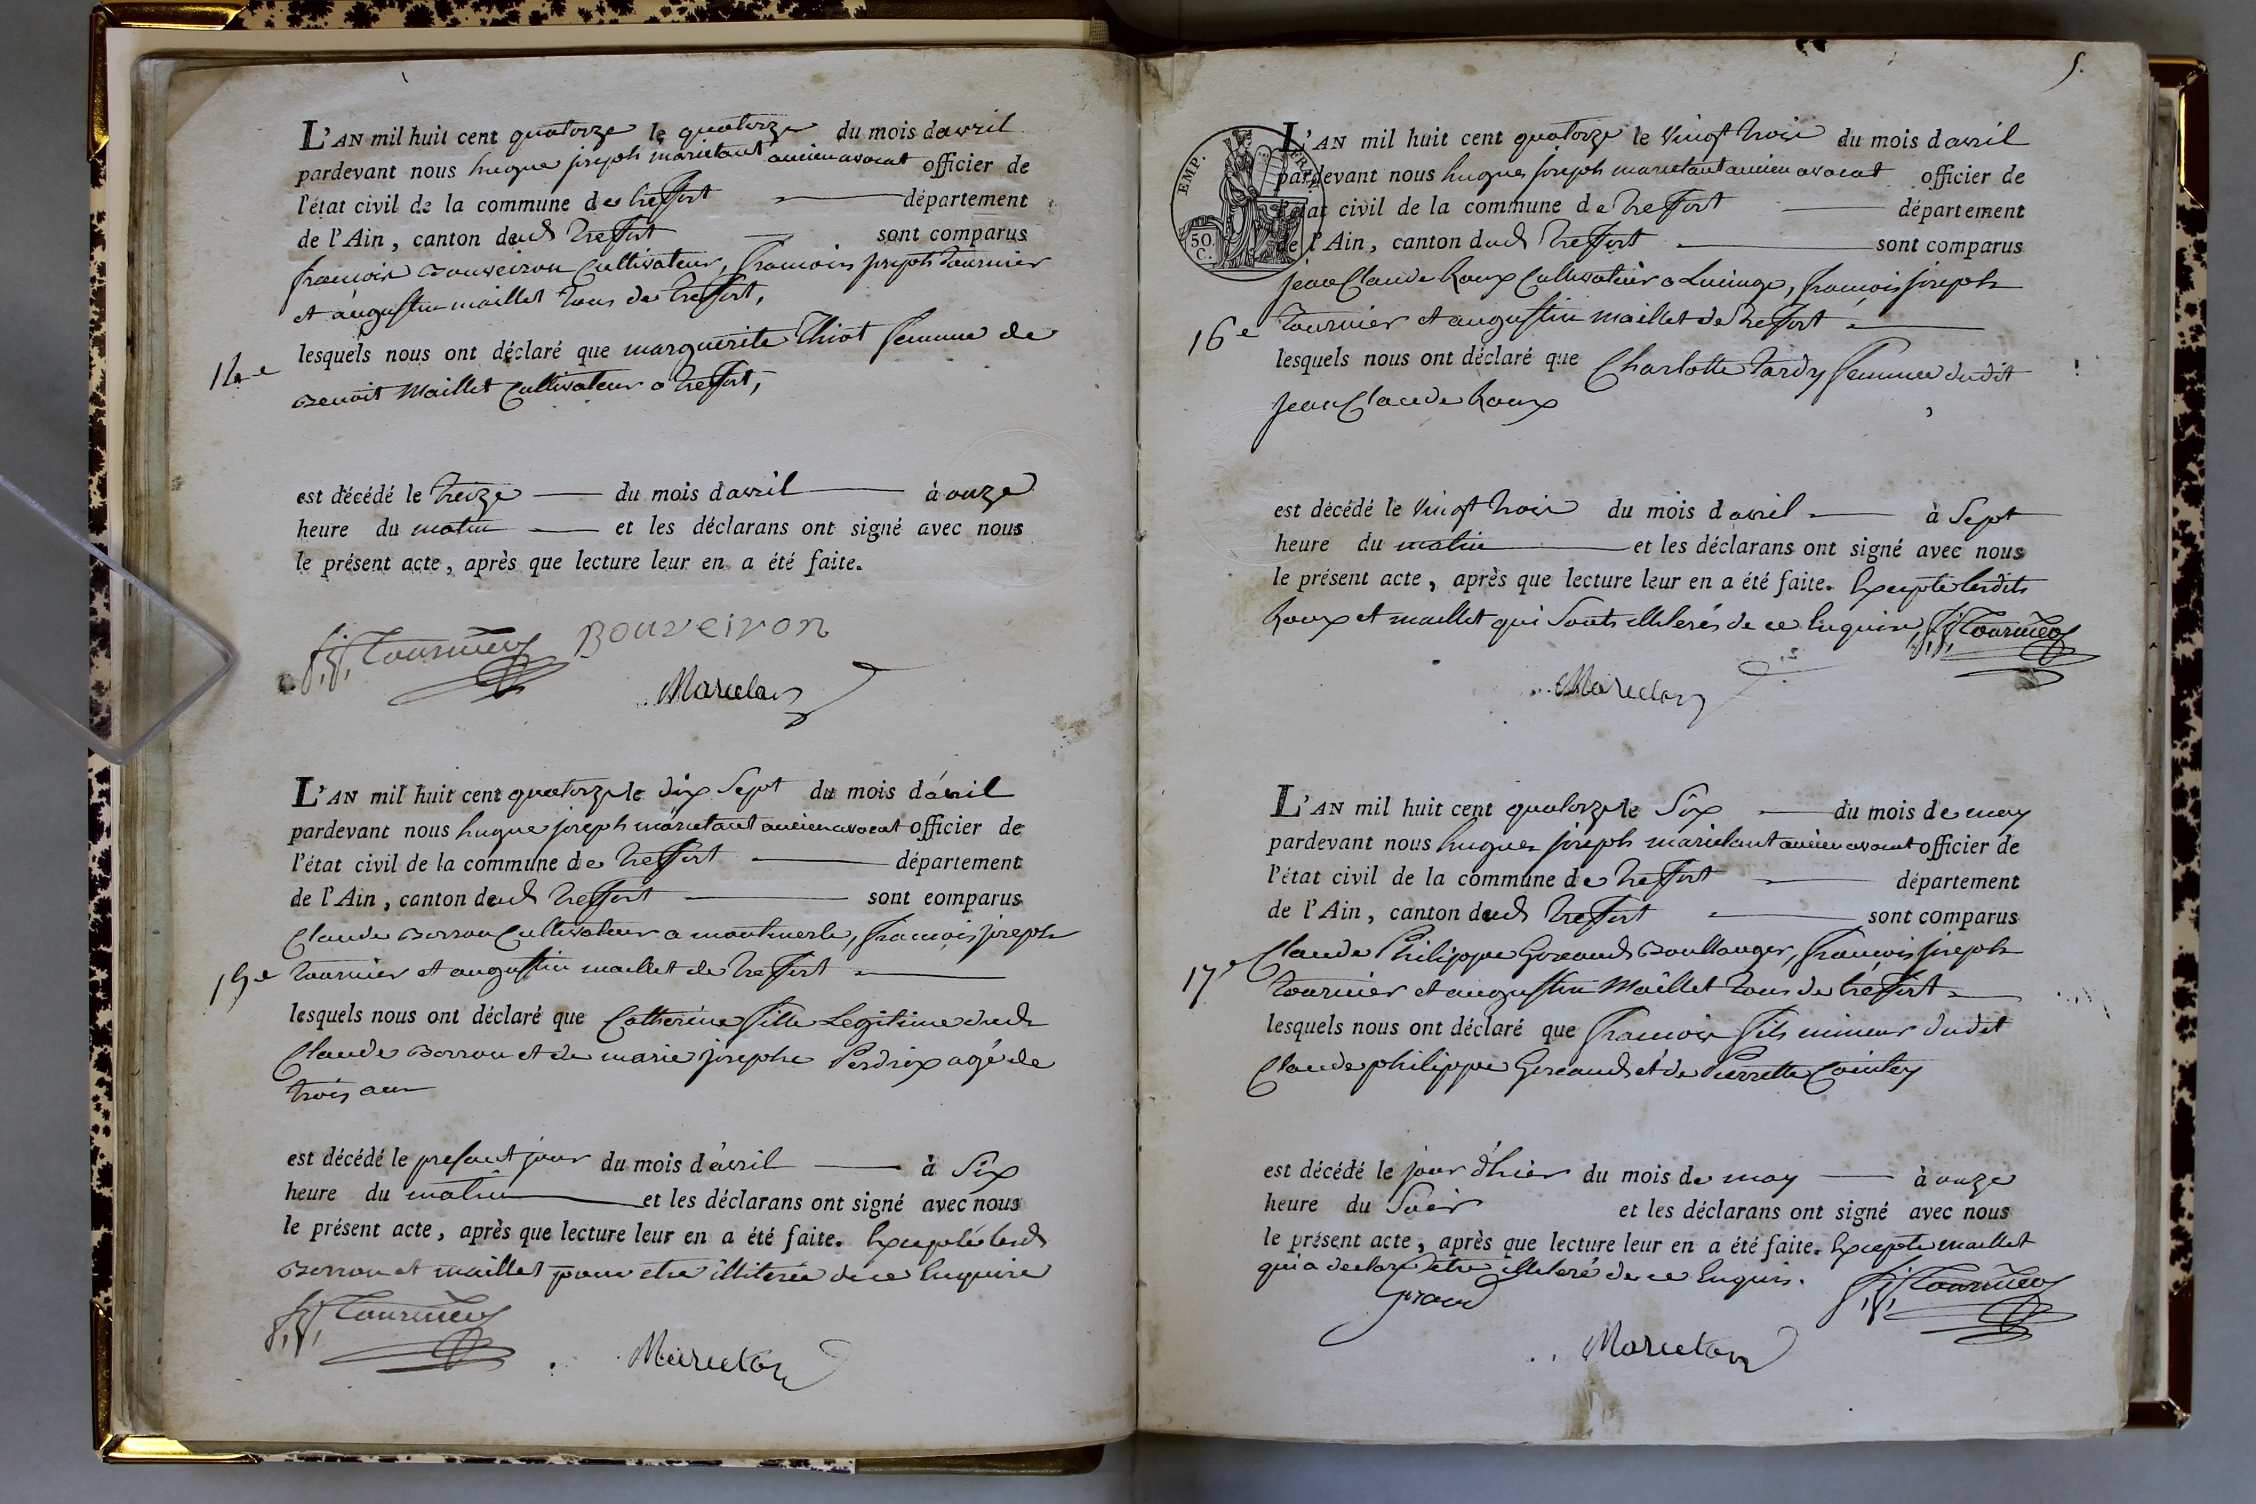 L'AN mil huit cent quatorze le quatorze du mois davril
pardevant nous hugue joseph marietant ancien avocat officier de
l'état civil de la commune de treffort département
de l'Ain, canton dud treffort sont comparus
francois Bouveiron Cultivateur, francois joseph tournier
et augustin maillet tous de treffort,
14e
lesquels nous ont déclaré que marguerite Thiot femme de
Benoit Maillet Cultivateur a treffort,
est décédé le treize du mois davril à onze
heure du matin et les déclarans ont signé avec nous
le présent acte, après que lecture leur en a été faite.
f. j. Tournier Bouveiron
Marietan
L'AN mil huit cent quatorze le dix Sept du mois d'avril
pardevant nous hugue joseph marietant ancien avocat officier de
l'état civil de la commune de treffort département
de l'Ain, canton dud treffort sont comparus
Claude Borron Cultivateur a montmerle, francois joseph
15e tournier et augustin maillet de treffort
lesquels nous ont déclaré que Catherine fille Legitime dud
Claude Borron et de marie josephe Perdrix agé de
trois ans
est décédé le present jour du mois d'avril à Six
heure du matin et les déclarans ont signé avec nous
le présent acte, après que lecture leur en a été faite. Excepté lesd
Borron et maillet pour etre illiterés de ce Enquire
f. j. Tournier
Marietan
5.
EMP. FR.
50.
C.
L'AN mil huit cent quatorze le vingt trois du mois davril
pardevant nous hugues joseph marietant ancien avocat officier de
l'état civil de la commune de treffort département
de l'Ain, canton dud treffort sont comparus
jean Claude Roux Cultivateur a Lucinge, francois joseph
16e tournier et augustin maillet de treffort
lesquels nous ont déclaré que Charlotte tardy femme dudit
jean Claude Roux
est décédé le vingt trois du mois davril à Sept
heure du matin et les déclarans ont signé avec nous
le présent acte, après que lecture leur en a été faite. Excepté lesdits
Roux et maillet qui Sont illiterés de ce Enquire, f. j. Tournier
Marietan
L'AN mil huit cent quatorze le Six du mois de may
pardevant nous hugues joseph marietant ancien avocat officier de
l'état civil de la commune de treffort département
de l'Ain, canton dud treffort sont comparus
Claude Philippe Gireaud Boullanger, francois joseph
17e tournier et augustin Maillet tous de treffort
lesquels nous ont déclaré que francois fils mineur dudit
Claude philippe Gireaud et de Pierrette Cointey
est décédé le jour d'hier du mois de may à onze
heure du Soir et les déclarans ont signé avec nous
le présent acte, après que lecture leur en a été faite. Excepté maillet
qui a declaré etre illiteré de ce Enquis.
Giraud f. j. Tournier
Marietan